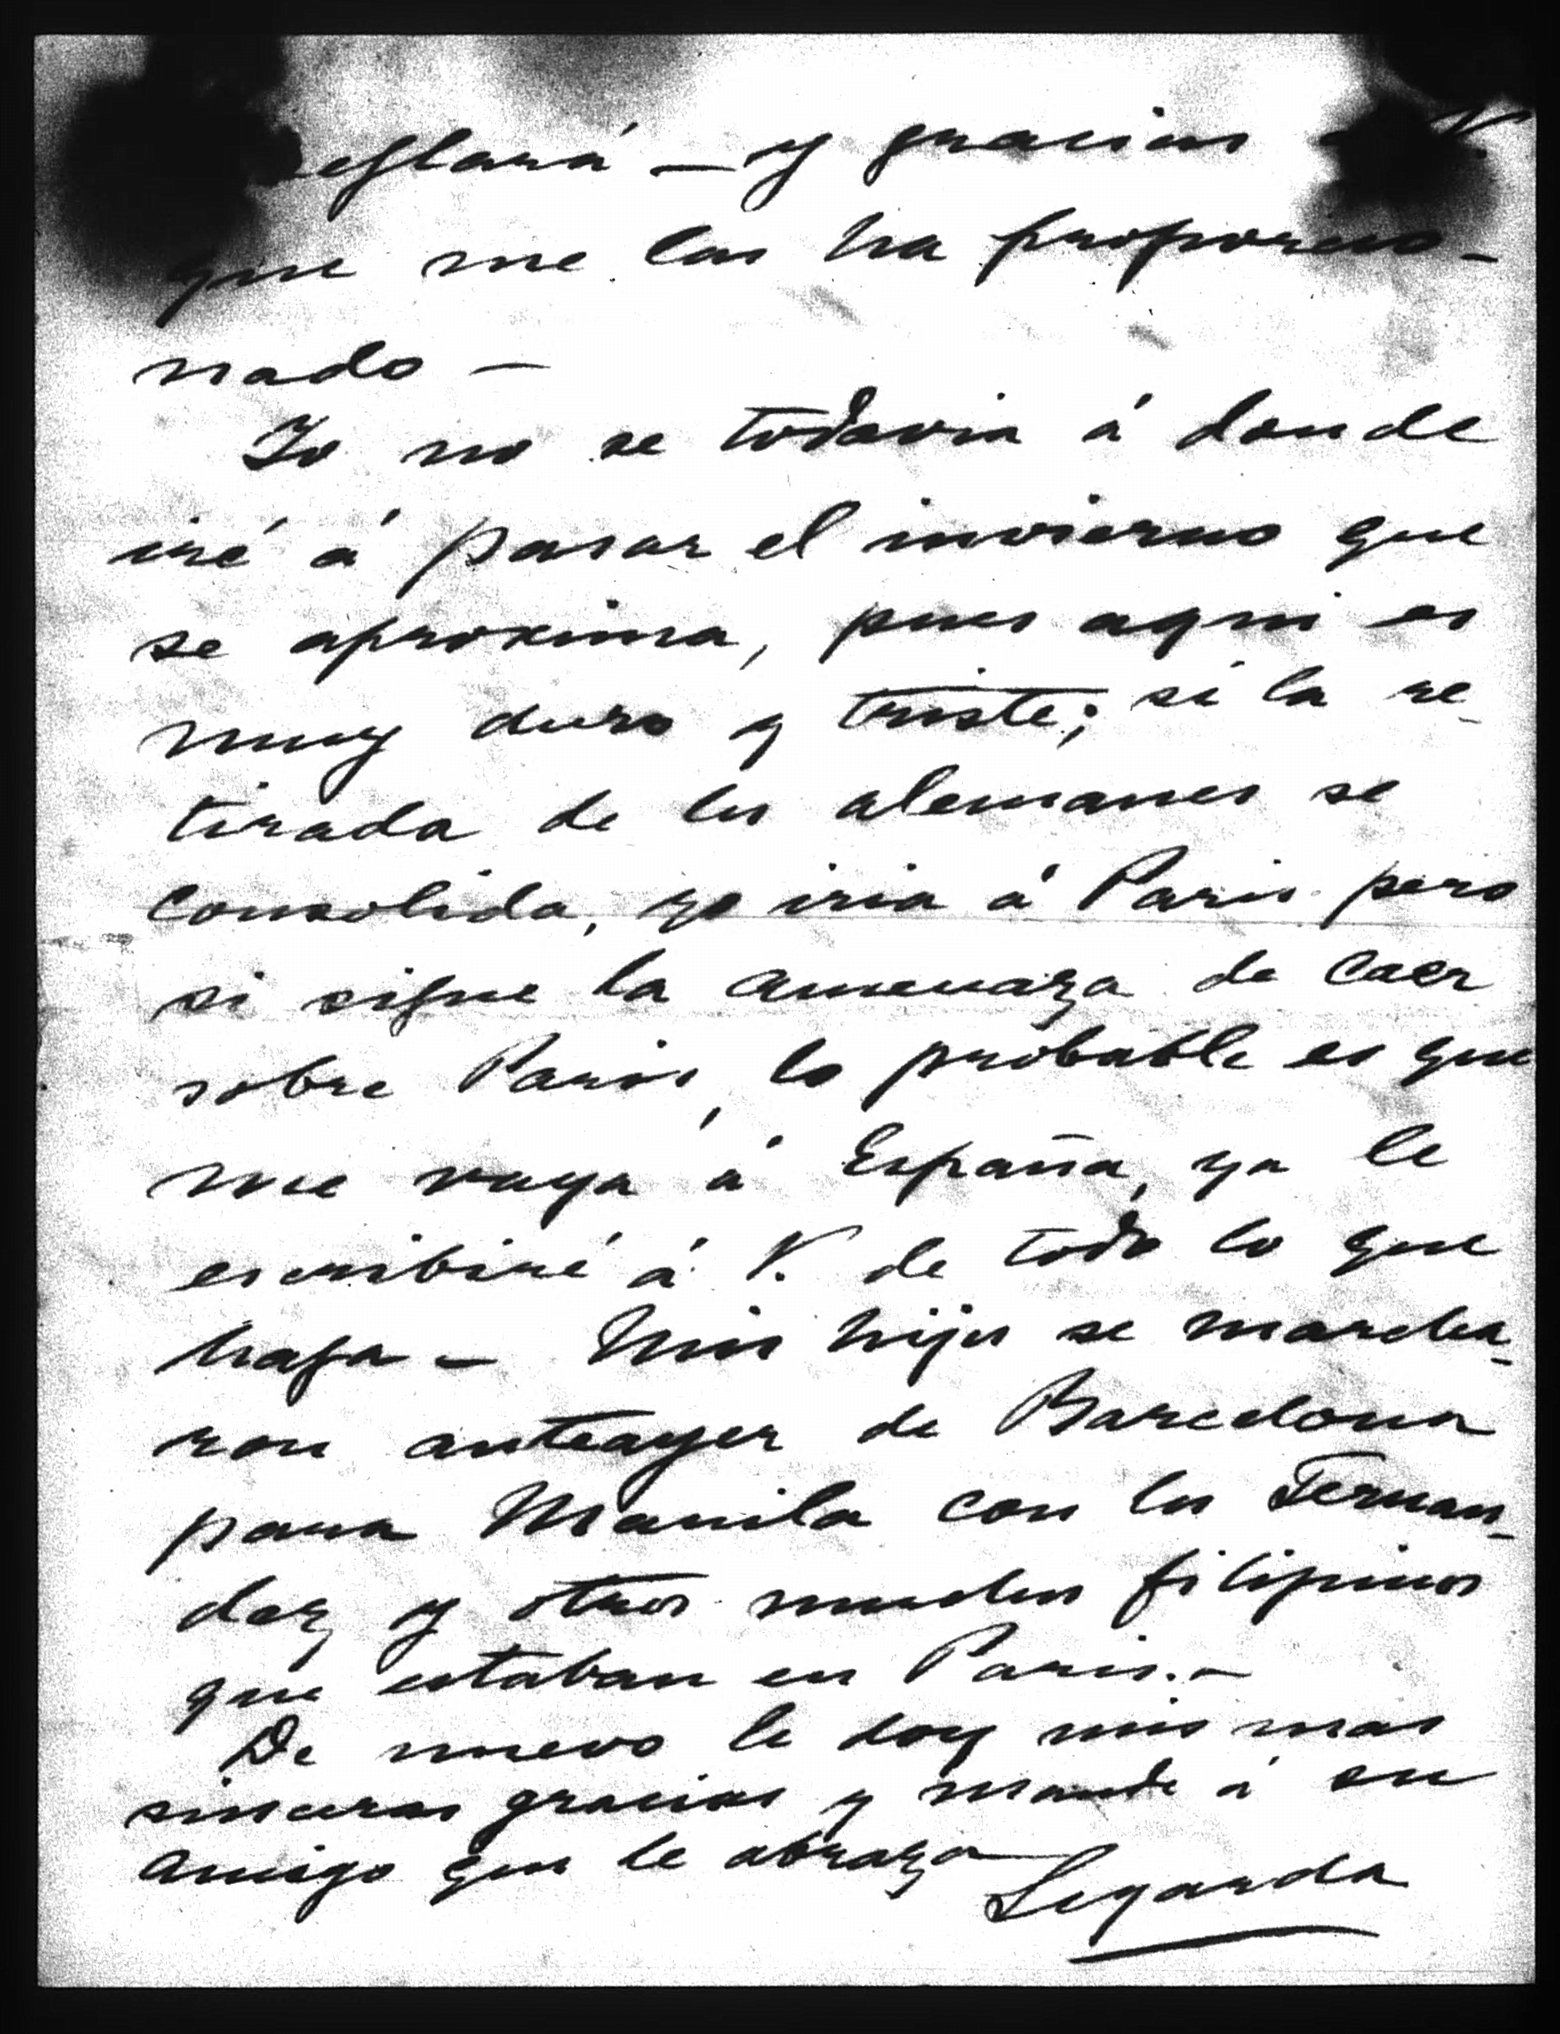 reglará — y gracias a V.
que me las ha proporcio-
nado —
Yo no se todavia á donde
iré á pasar el invierno que
se aproxima, pues aqui es
muy duro y triste; si la re-
tirada de los alemanes se
consolida, yo iria á Paris pero
si sigue la amenaza de caer
sobre Paris, lo probable es que
me vaya á España, ya le
escribiré á V. de todo lo que
haga — Mis hijos se marcha-
ron anteayer de Barcelona
para Manila con los Fernan-
dez y otros muchos filipinos
que estaban en Paris. —
De nuevo le doy mis mas
sinceras gracias y mande á su
amigo que le abraza
Legarda